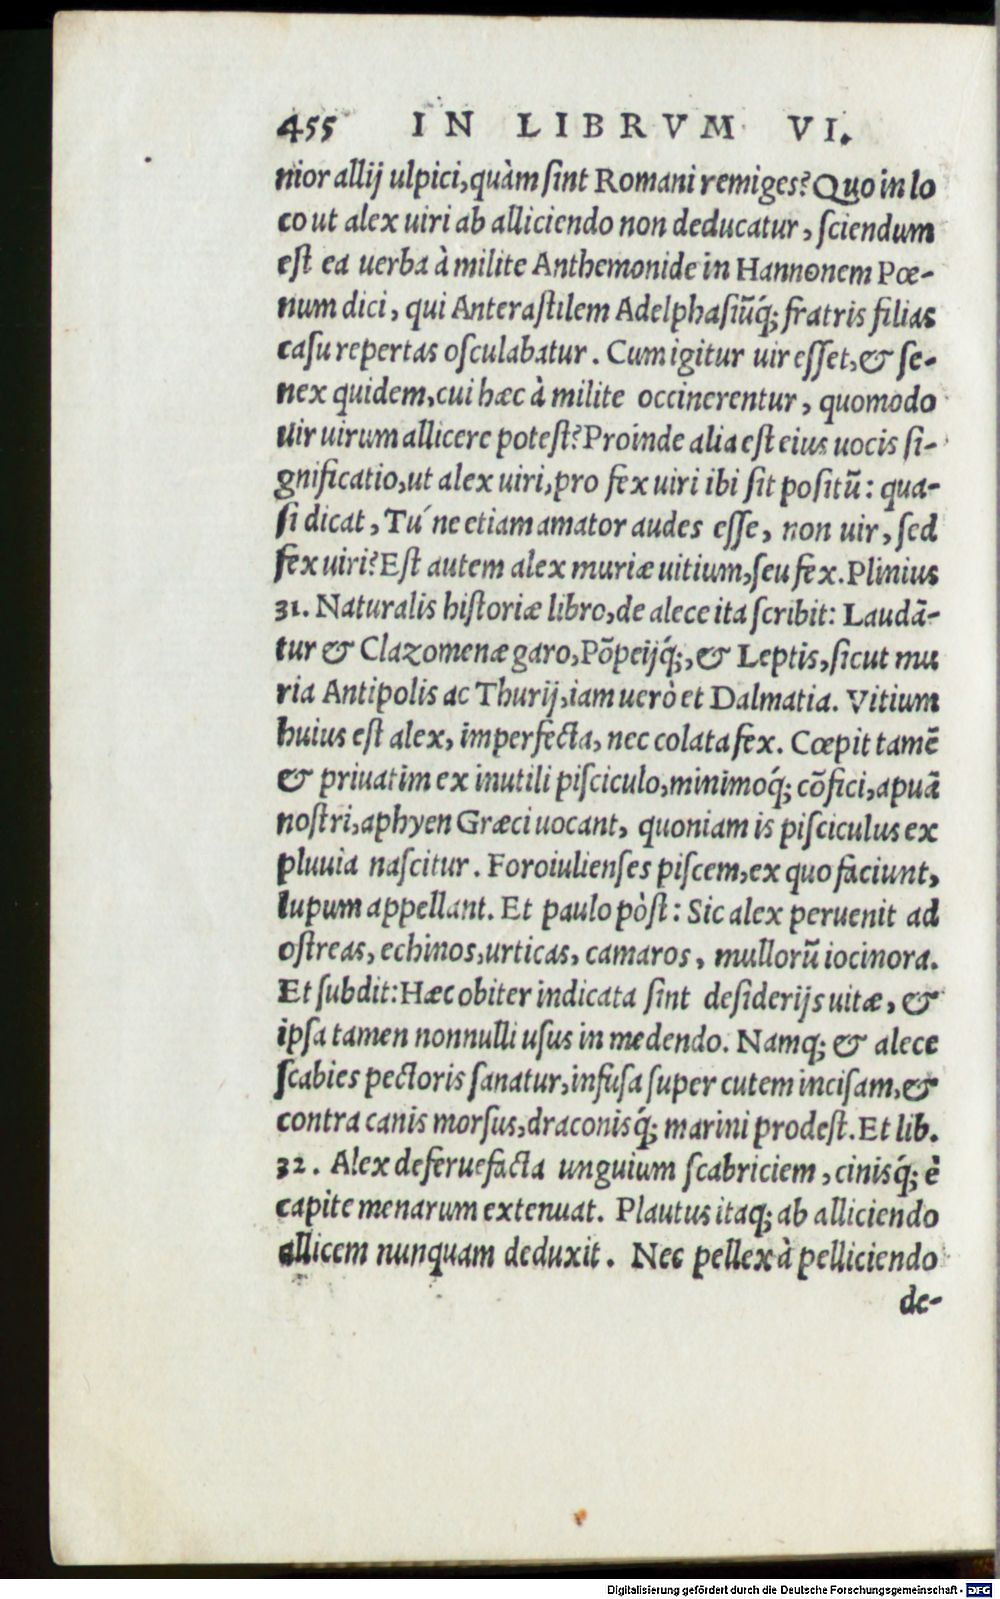 455 IN LIBRVM VI.
nior allij ulpici, quàm ſint Romani remiges? Quo in lo
co ut alex uiri ab alliciendo non deducatur, ſciendum
eſt ea uerba à milite Anthemonide in Hannonem Pœ-
num dici, qui Anteraſtilem Adelphaſiūq́; fratris filias
caſu repertas oſculabatur. Cum igitur uir eſſet, & ſe-
nex quidem, cui hæc à milite occinerentur, quomodo
uir uirum allicere poteſt? Proinde alia eſt eius uocis ſi-
gnificatio, ut alex uiri, pro fex uiri ibi ſit poſitū: qua-
ſi dicat, Tú ne etiam amator audes eſſe, non uir, ſed
fex uiri? Eſt autem alex muriæ uitium, ſeu fex. Plinius
31. Naturalis hiſtoriæ libro, de alece ita ſcribit: Laudā-
tur & Clazomenæ garo, Pōpeijq́;, & Leptis, ſicut mu
ria Antipolis ac Thurij, iam uerò et Dalmatia. Vitium
huius eſt alex, imperfecta, nec colata fex. Cœpit tamē
& priuatim ex inutili piſciculo, minimoq́; cōfici, apuā
noſtri, aphyen Græci uocant, quoniam is piſciculus ex
pluuia naſcitur. Foroiulienſes piſcem, ex quo faciunt,
lupum appellant. Et paulo pòſt: Sic alex peruenit ad
oſtreas, echinos, urticas, camaros, mullorū iocinora.
Et ſubdit: Hæc obiter indicata ſint deſiderijs uitæ, &
ipſa tamen nonnulli uſus in medendo. Namq; & alece
ſcabies pectoris ſanatur, infuſa ſuper cutem inciſam, &
contra canis morſus, draconisq́; marini prodeſt. Et lib.
32. Alex deferuefacta unguium ſcabriciem, cinisq́; è
capite menarum extenuat. Plautus itaq; ab alliciendo
allicem nunquam deduxit. Nec pellex à pelliciendo
de-
Digitalisierung gefördert durch die Deutsche Forschungsgemeinschaft - DFG